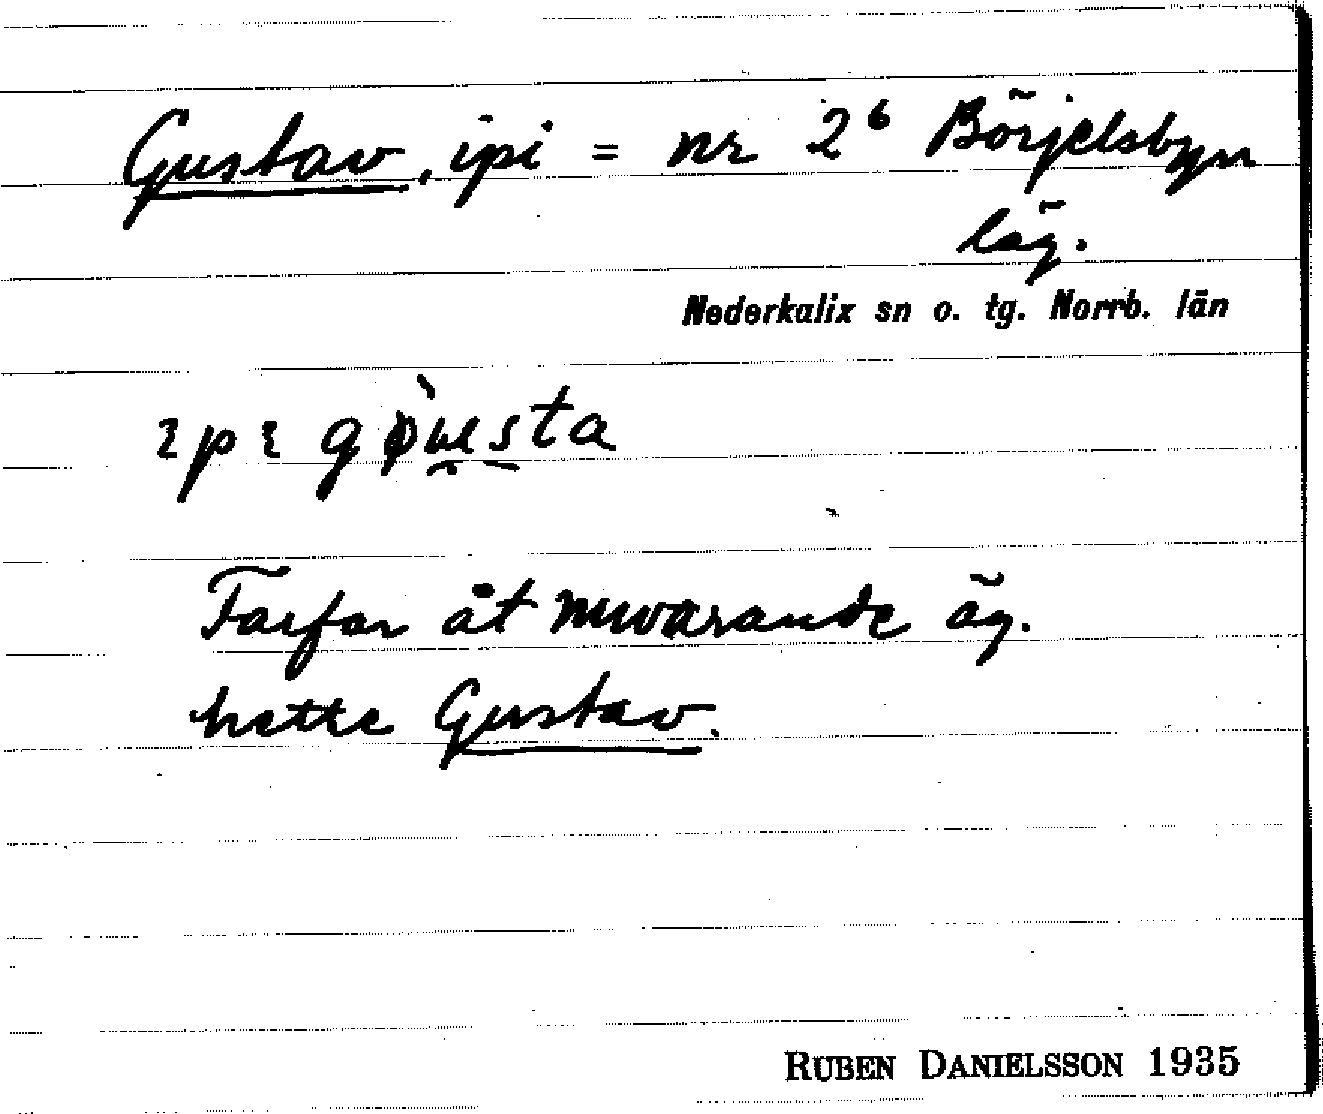 Gustav, ipi = nr 2⁶ Börjelsbyn
läg.
Nederkalix sn o. tg. Norrb. län
gø̀u̯sta
Farfar åt nuvarande äg.
hette Gustav.
RUBEN DANIELSSON 1935